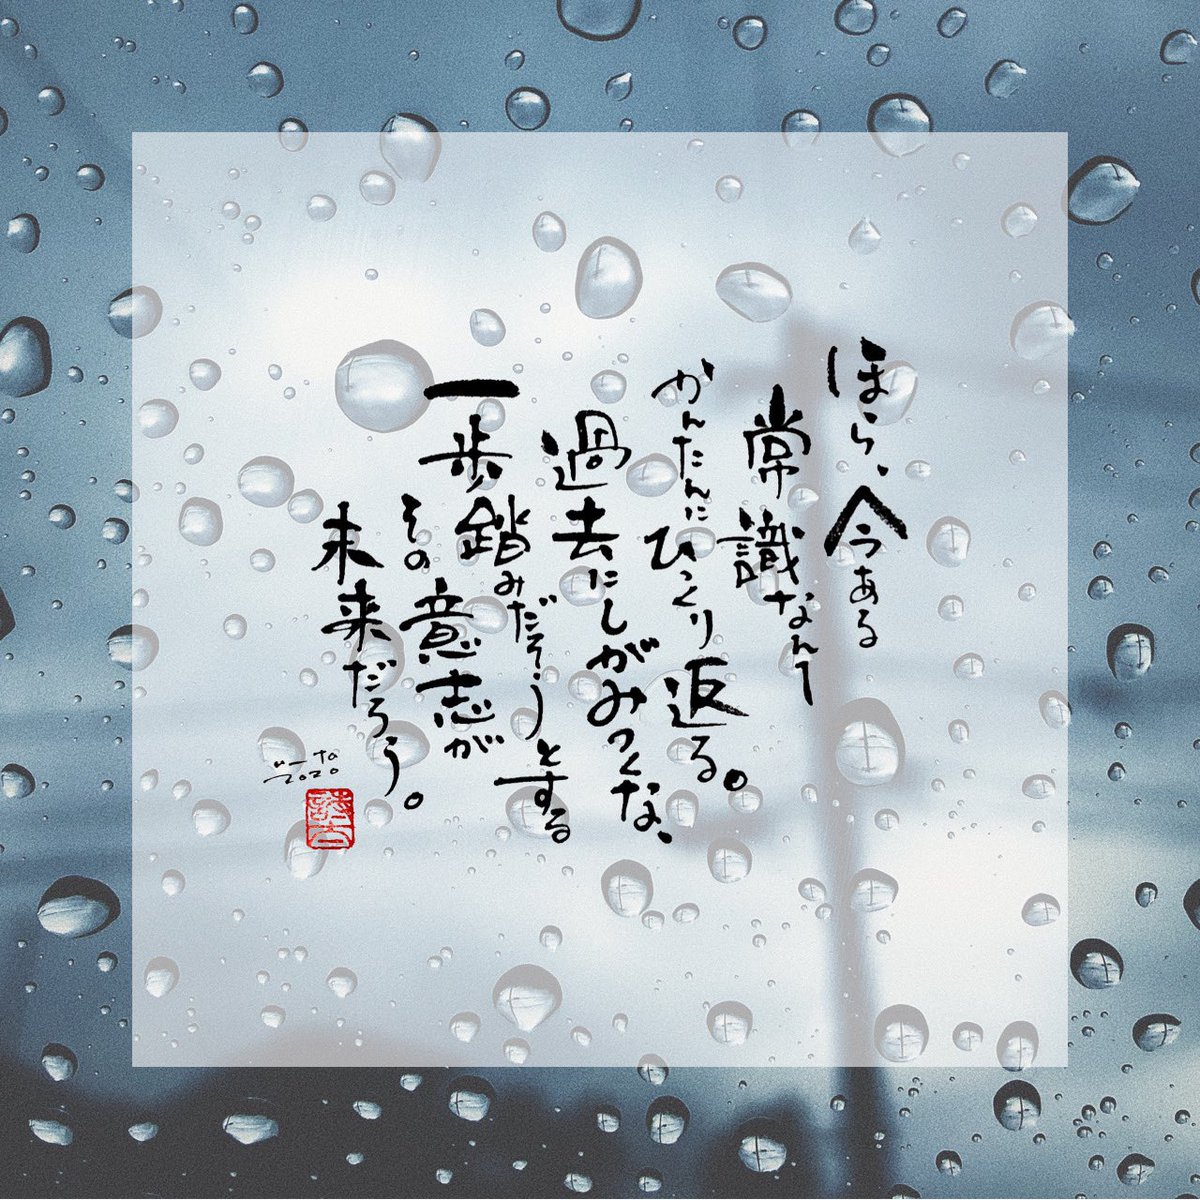 ほら、今ある
常識なんて
かんたんにひっくり返る。
過去にしがみつくな、
一歩踏みだそうとする
その意志が
未来だろう。
2020